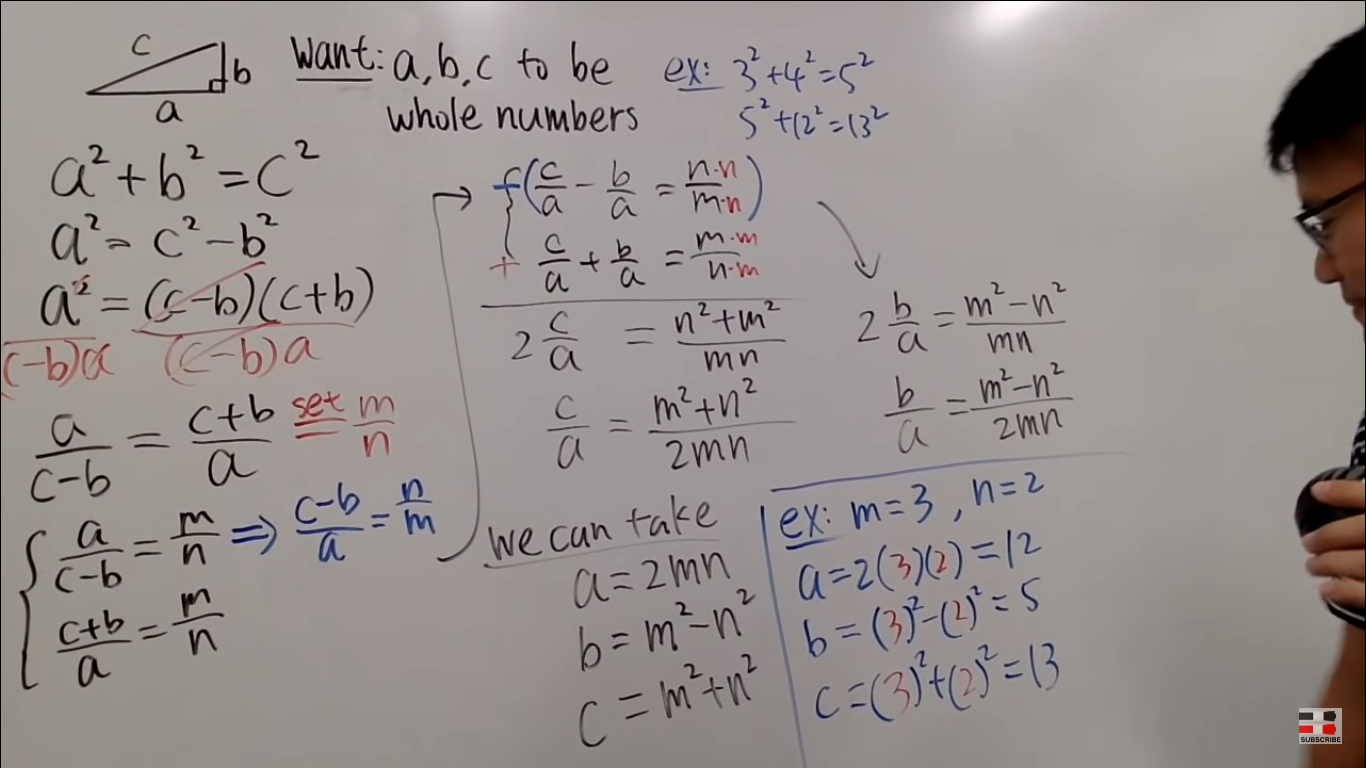 c
b
a
Want: a,b,c to be
whole numbers
ex: 3²+4²=5²
5²+12²=13²
a²+b²=c²
a²=c²-b²
a²=(c-b)(c+b)
(c-b)a (c-b)a
a/(c-b) = (c+b)/a set= m/n
{ a/(c-b) = m/n ⇒ (c-b)/a = n/m
(c+b)/a = m/n
→ -(c/a - b/a = n·n/m·n)
+ c/a + b/a = m·m/n·m
2 c/a = (n²+m²)/mn
c/a = (m²+n²)/2mn
2 b/a = (m²-n²)/mn
b/a = (m²-n²)/2mn
we can take
a=2mn
b=m²-n²
c=m²+n²
ex: m=3, n=2
a=2(3)(2)=12
b=(3)²-(2)²=5
c=(3)²+(2)²=13
SUBSCRIBE